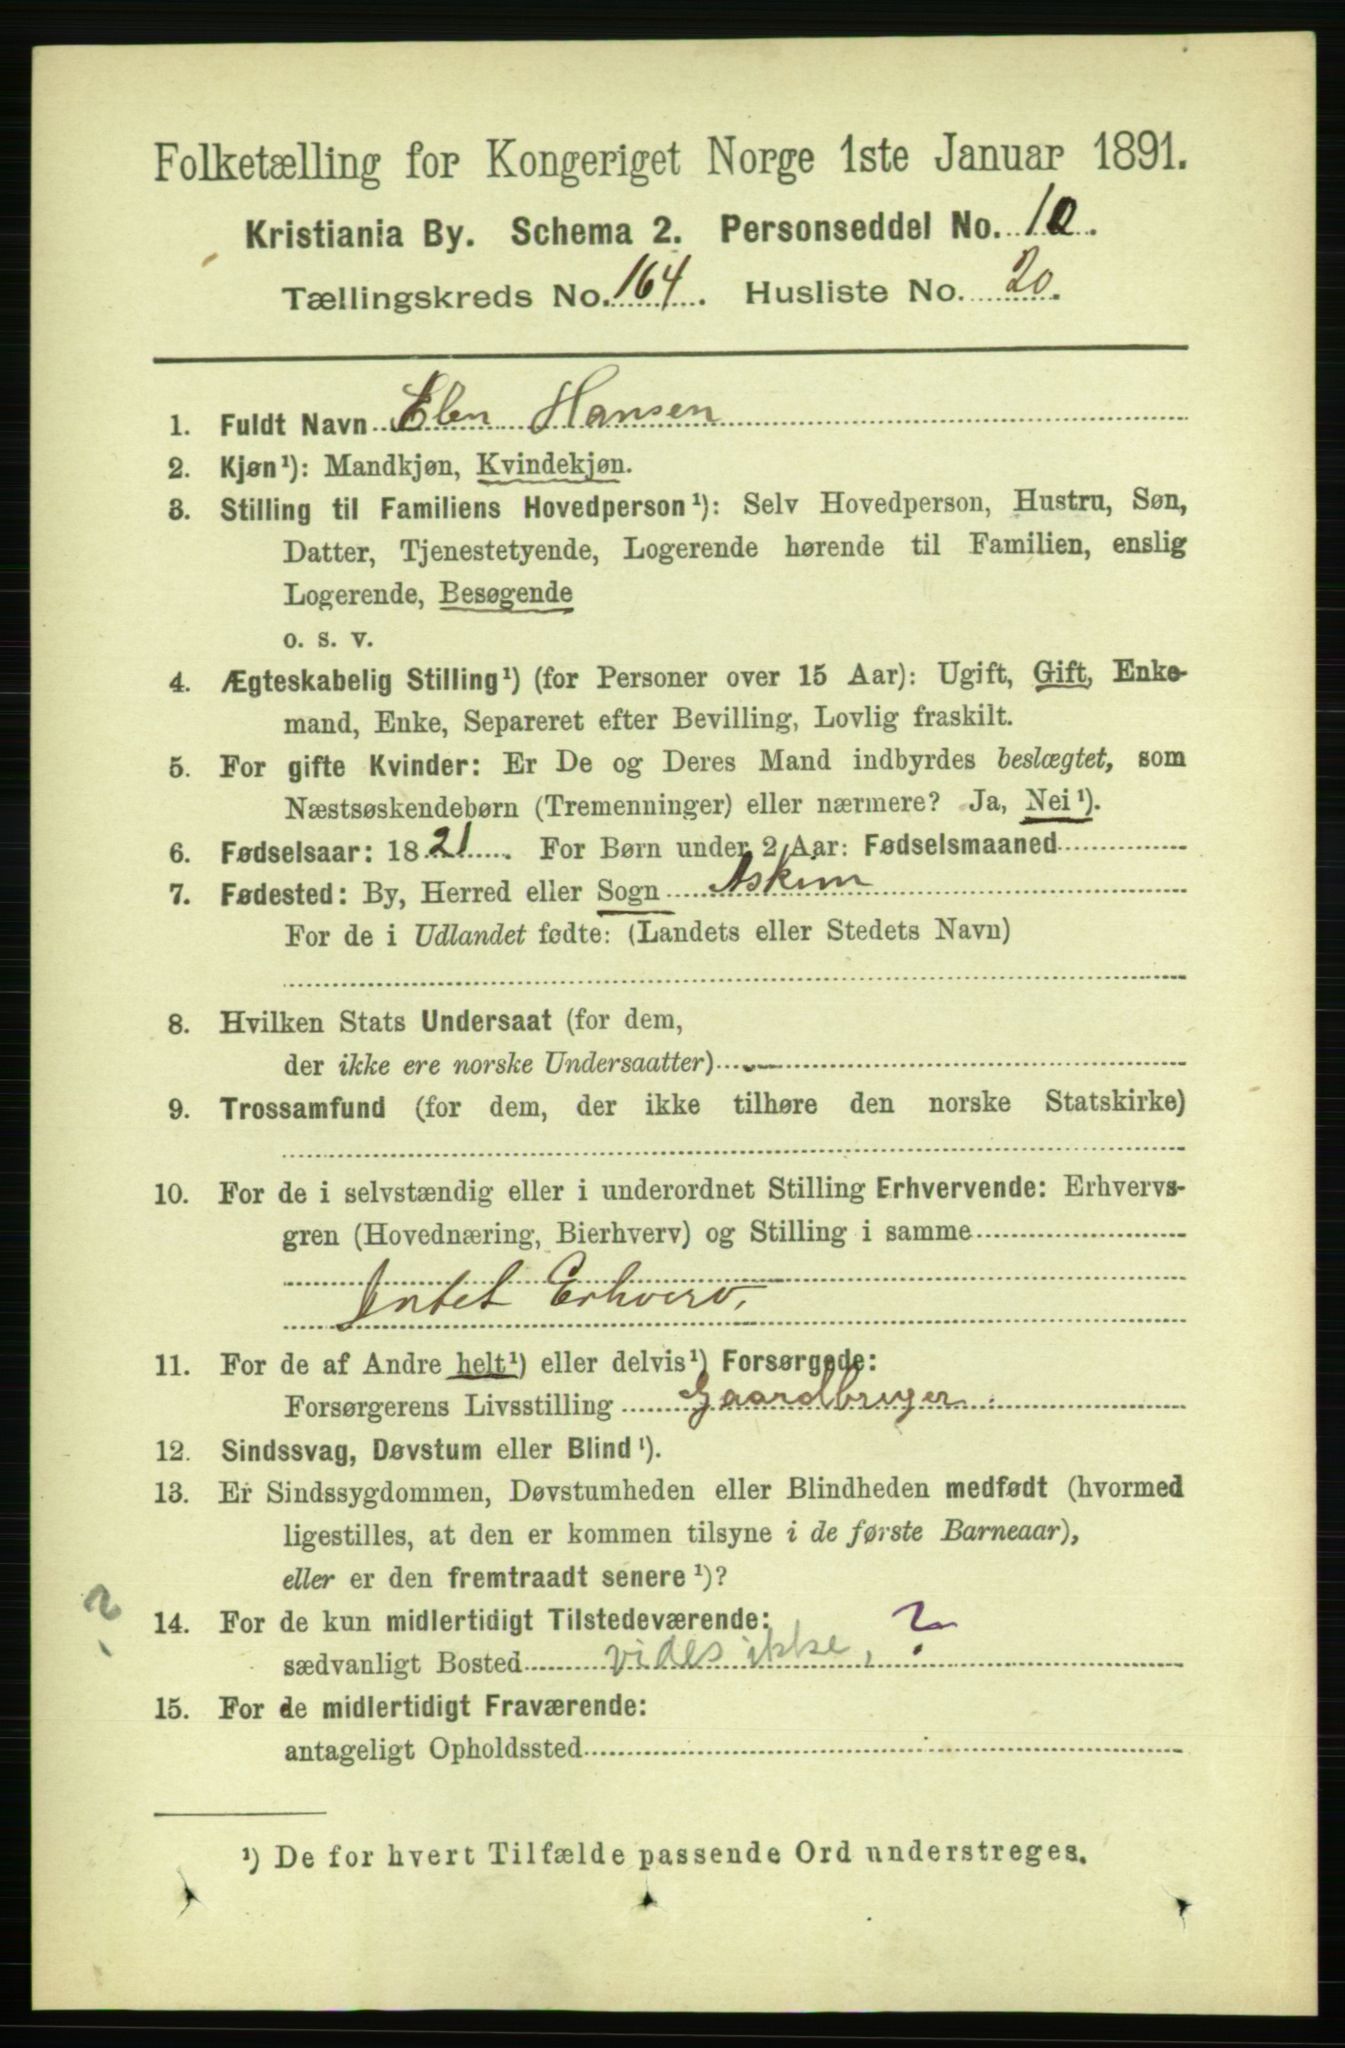 Folketælling for Kongeriget Norge 1ste Januar 1891.
Kristiania By. Schema 2. Personseddel No. 10.
Tællingskreds No. 164. Husliste No. 20.
1. Fuldt Navn Elen Hansen
2. Kjøn¹): Mandkjøn, Kvindekjøn.
3. Stilling til Familiens Hovedperson¹): Selv Hovedperson, Hustru, Søn,
Datter, Tjenestetyende, Logerende hørende til Familien, enslig
Logerende, Besøgende
o. s. v.
4. Ægteskabelig Stilling¹) (for Personer over 15 Aar): Ugift, Gift, Enke-
mand, Enke, Separeret efter Bevilling, Lovlig fraskilt.
5. For gifte Kvinder: Er De og Deres Mand indbyrdes beslægtet, som
Næstsøskendebørn (Tremenninger) eller nærmere? Ja, Nei¹).
6. Fødselsaar: 1821. For Børn under 2 Aar: Fødselsmaaned
7. Fødested: By, Herred eller Sogn Askim
For de i Udlandet fødte: (Landets eller Stedets Navn)
8. Hvilken Stats Undersaat (for dem,
der ikke ere norske Undersaatter)
9. Trossamfund (for dem, der ikke tilhøre den norske Statskirke)
10. For de i selvstændig eller i underordnet Stilling Erhvervende: Erhvervs-
gren (Hovednæring, Bierhverv) og Stilling i samme
Intet Erhverv.
11. For de af Andre helt¹) eller delvis¹) Forsørgede:
Forsørgerens Livsstilling Gaardbruger.
12. Sindssvag, Døvstum eller Blind¹).
13. Er Sindssygdommen, Døvstumheden eller Blindheden medfødt (hvormed
ligestilles, at den er kommen tilsyne i de første Barneaar),
eller er den fremtraadt senere¹)?
?
14. For de kun midlertidigt Tilstedeværende:
sædvanligt Bosted vides ikke, ?
15. For de midlertidigt Fraværende:
antageligt Opholdssted
¹) De for hvert Tilfælde passende Ord understreges.